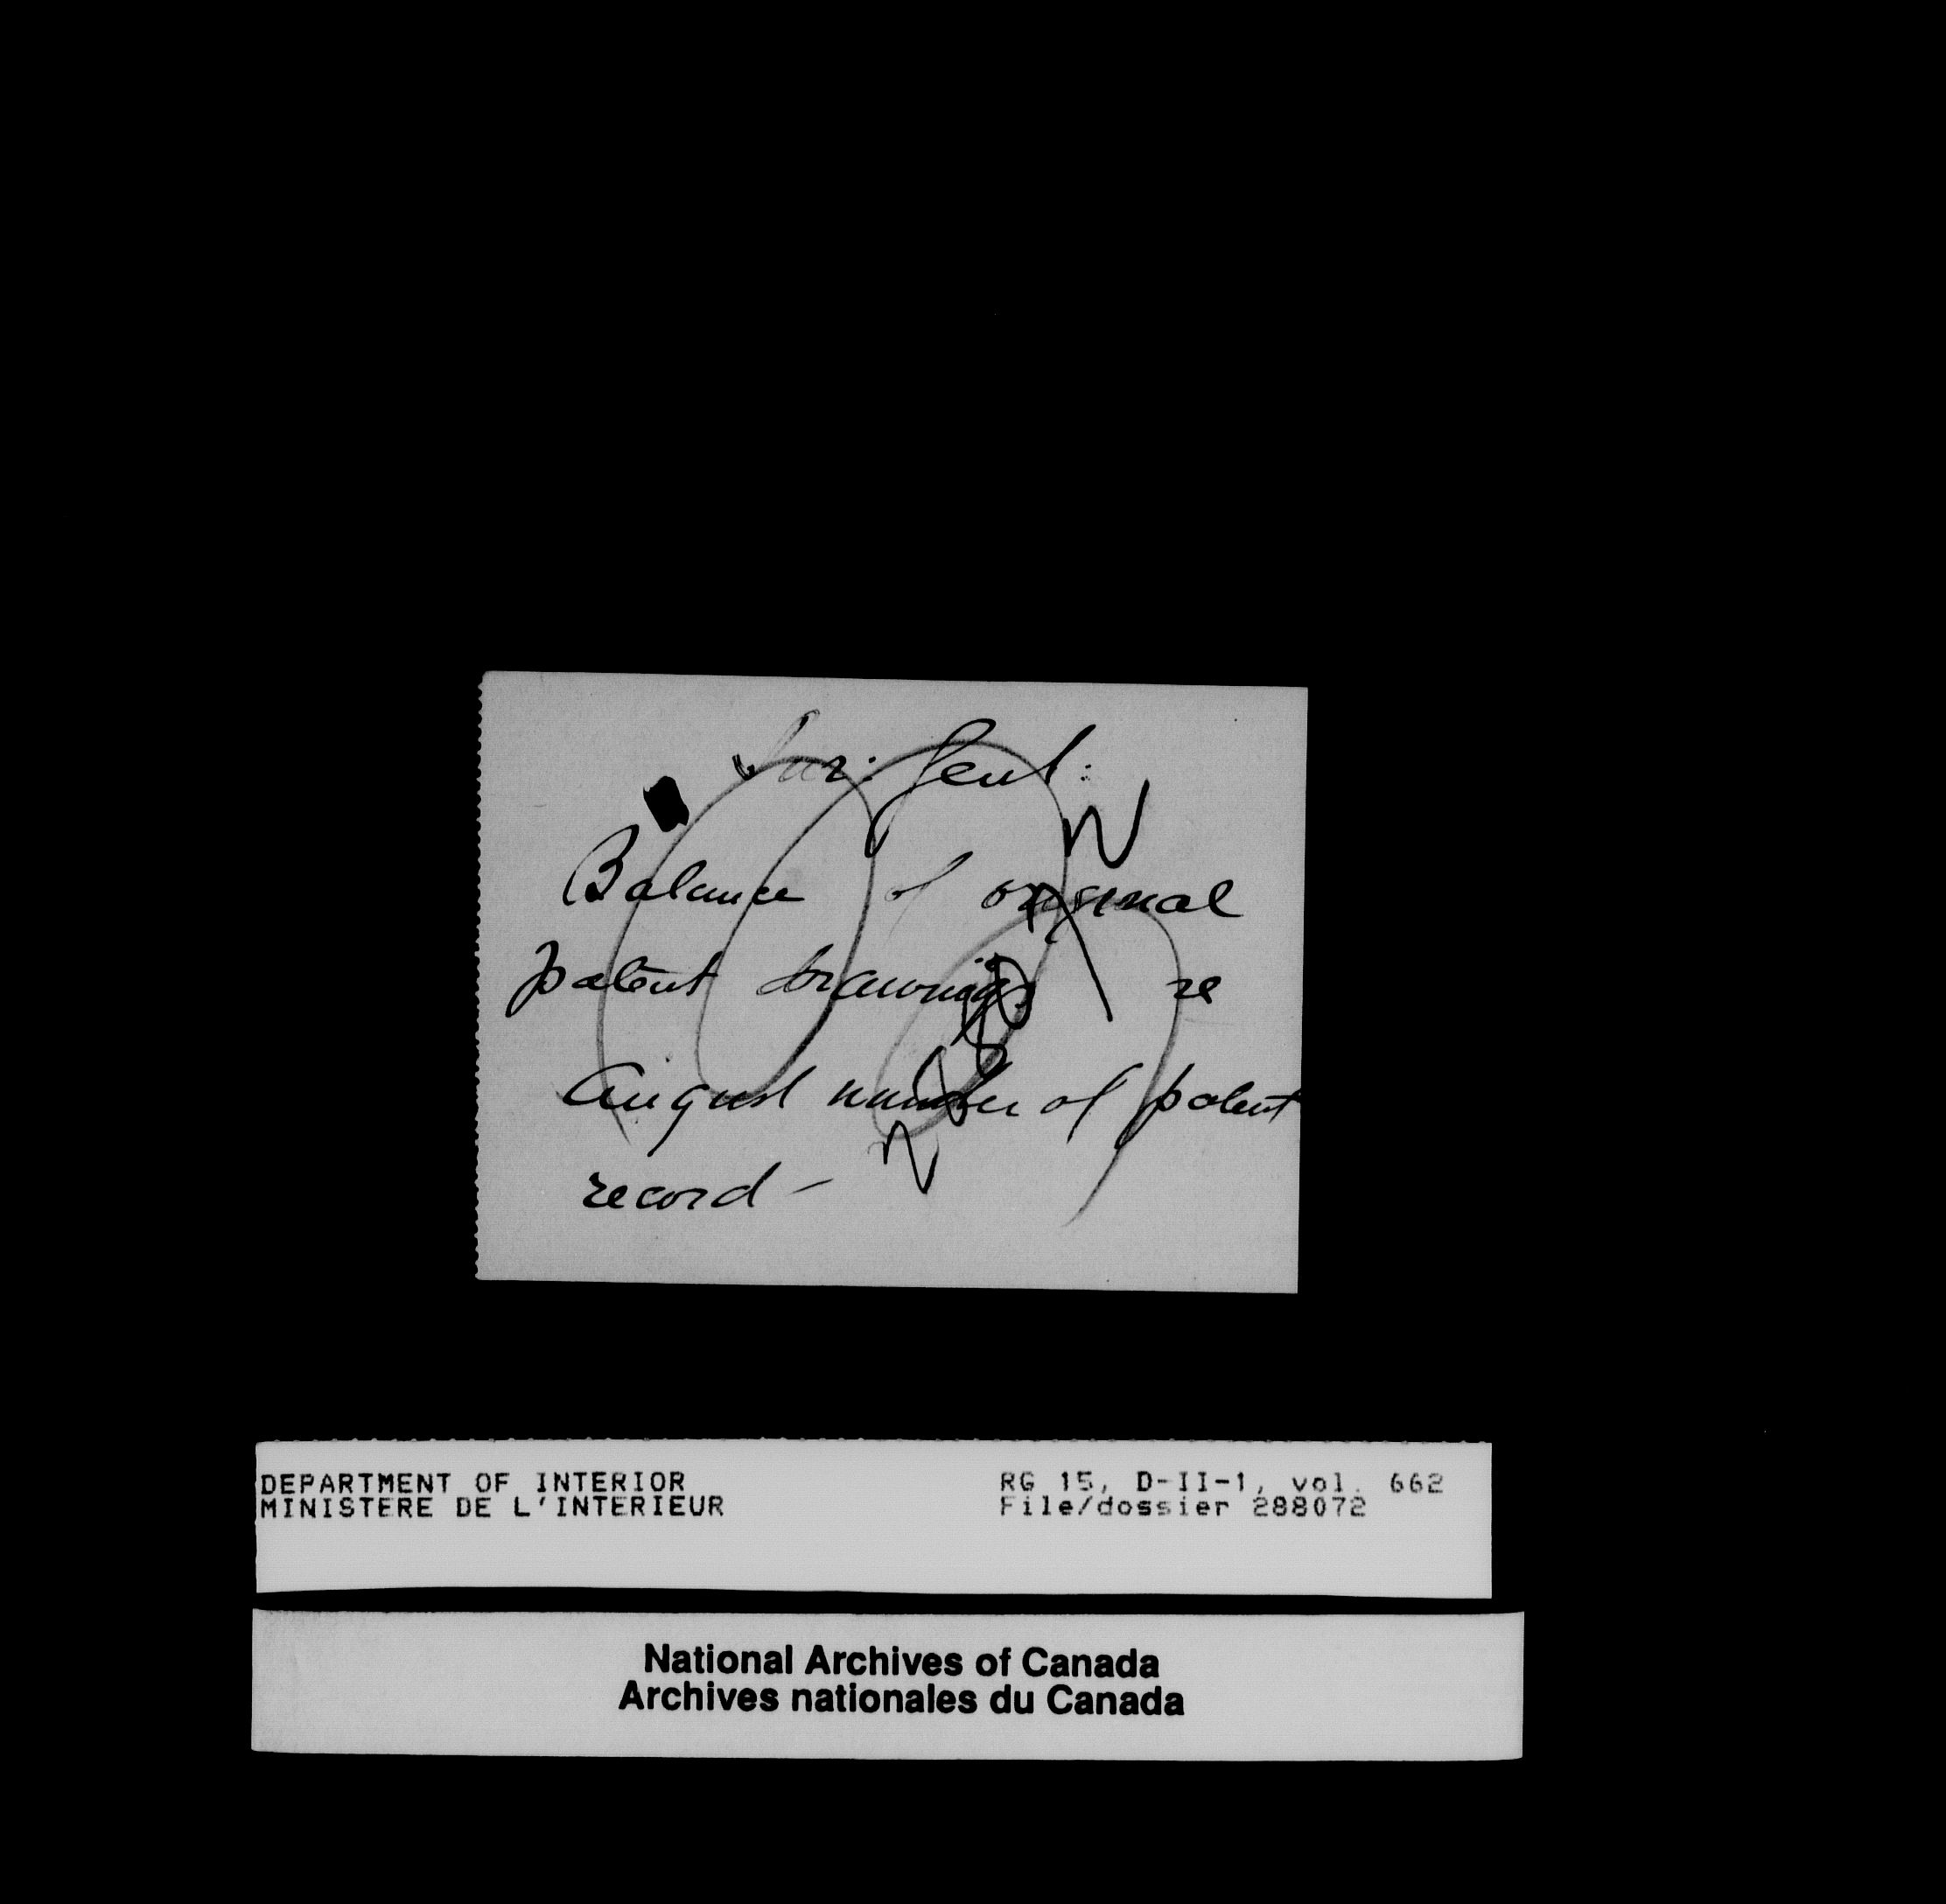 Sur: Genl:
Balance of original
patent drawings re
August number of patent
record -
DEPARTMENT OF INTERIOR RG 15, D-II-1, vol. 662
MINISTERE DE L'INTERIEUR File/dossier 288072
National Archives of Canada
Archives nationales du Canada